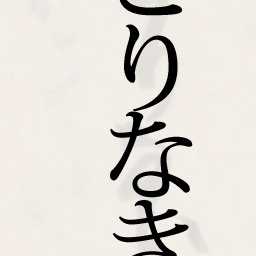 りなき